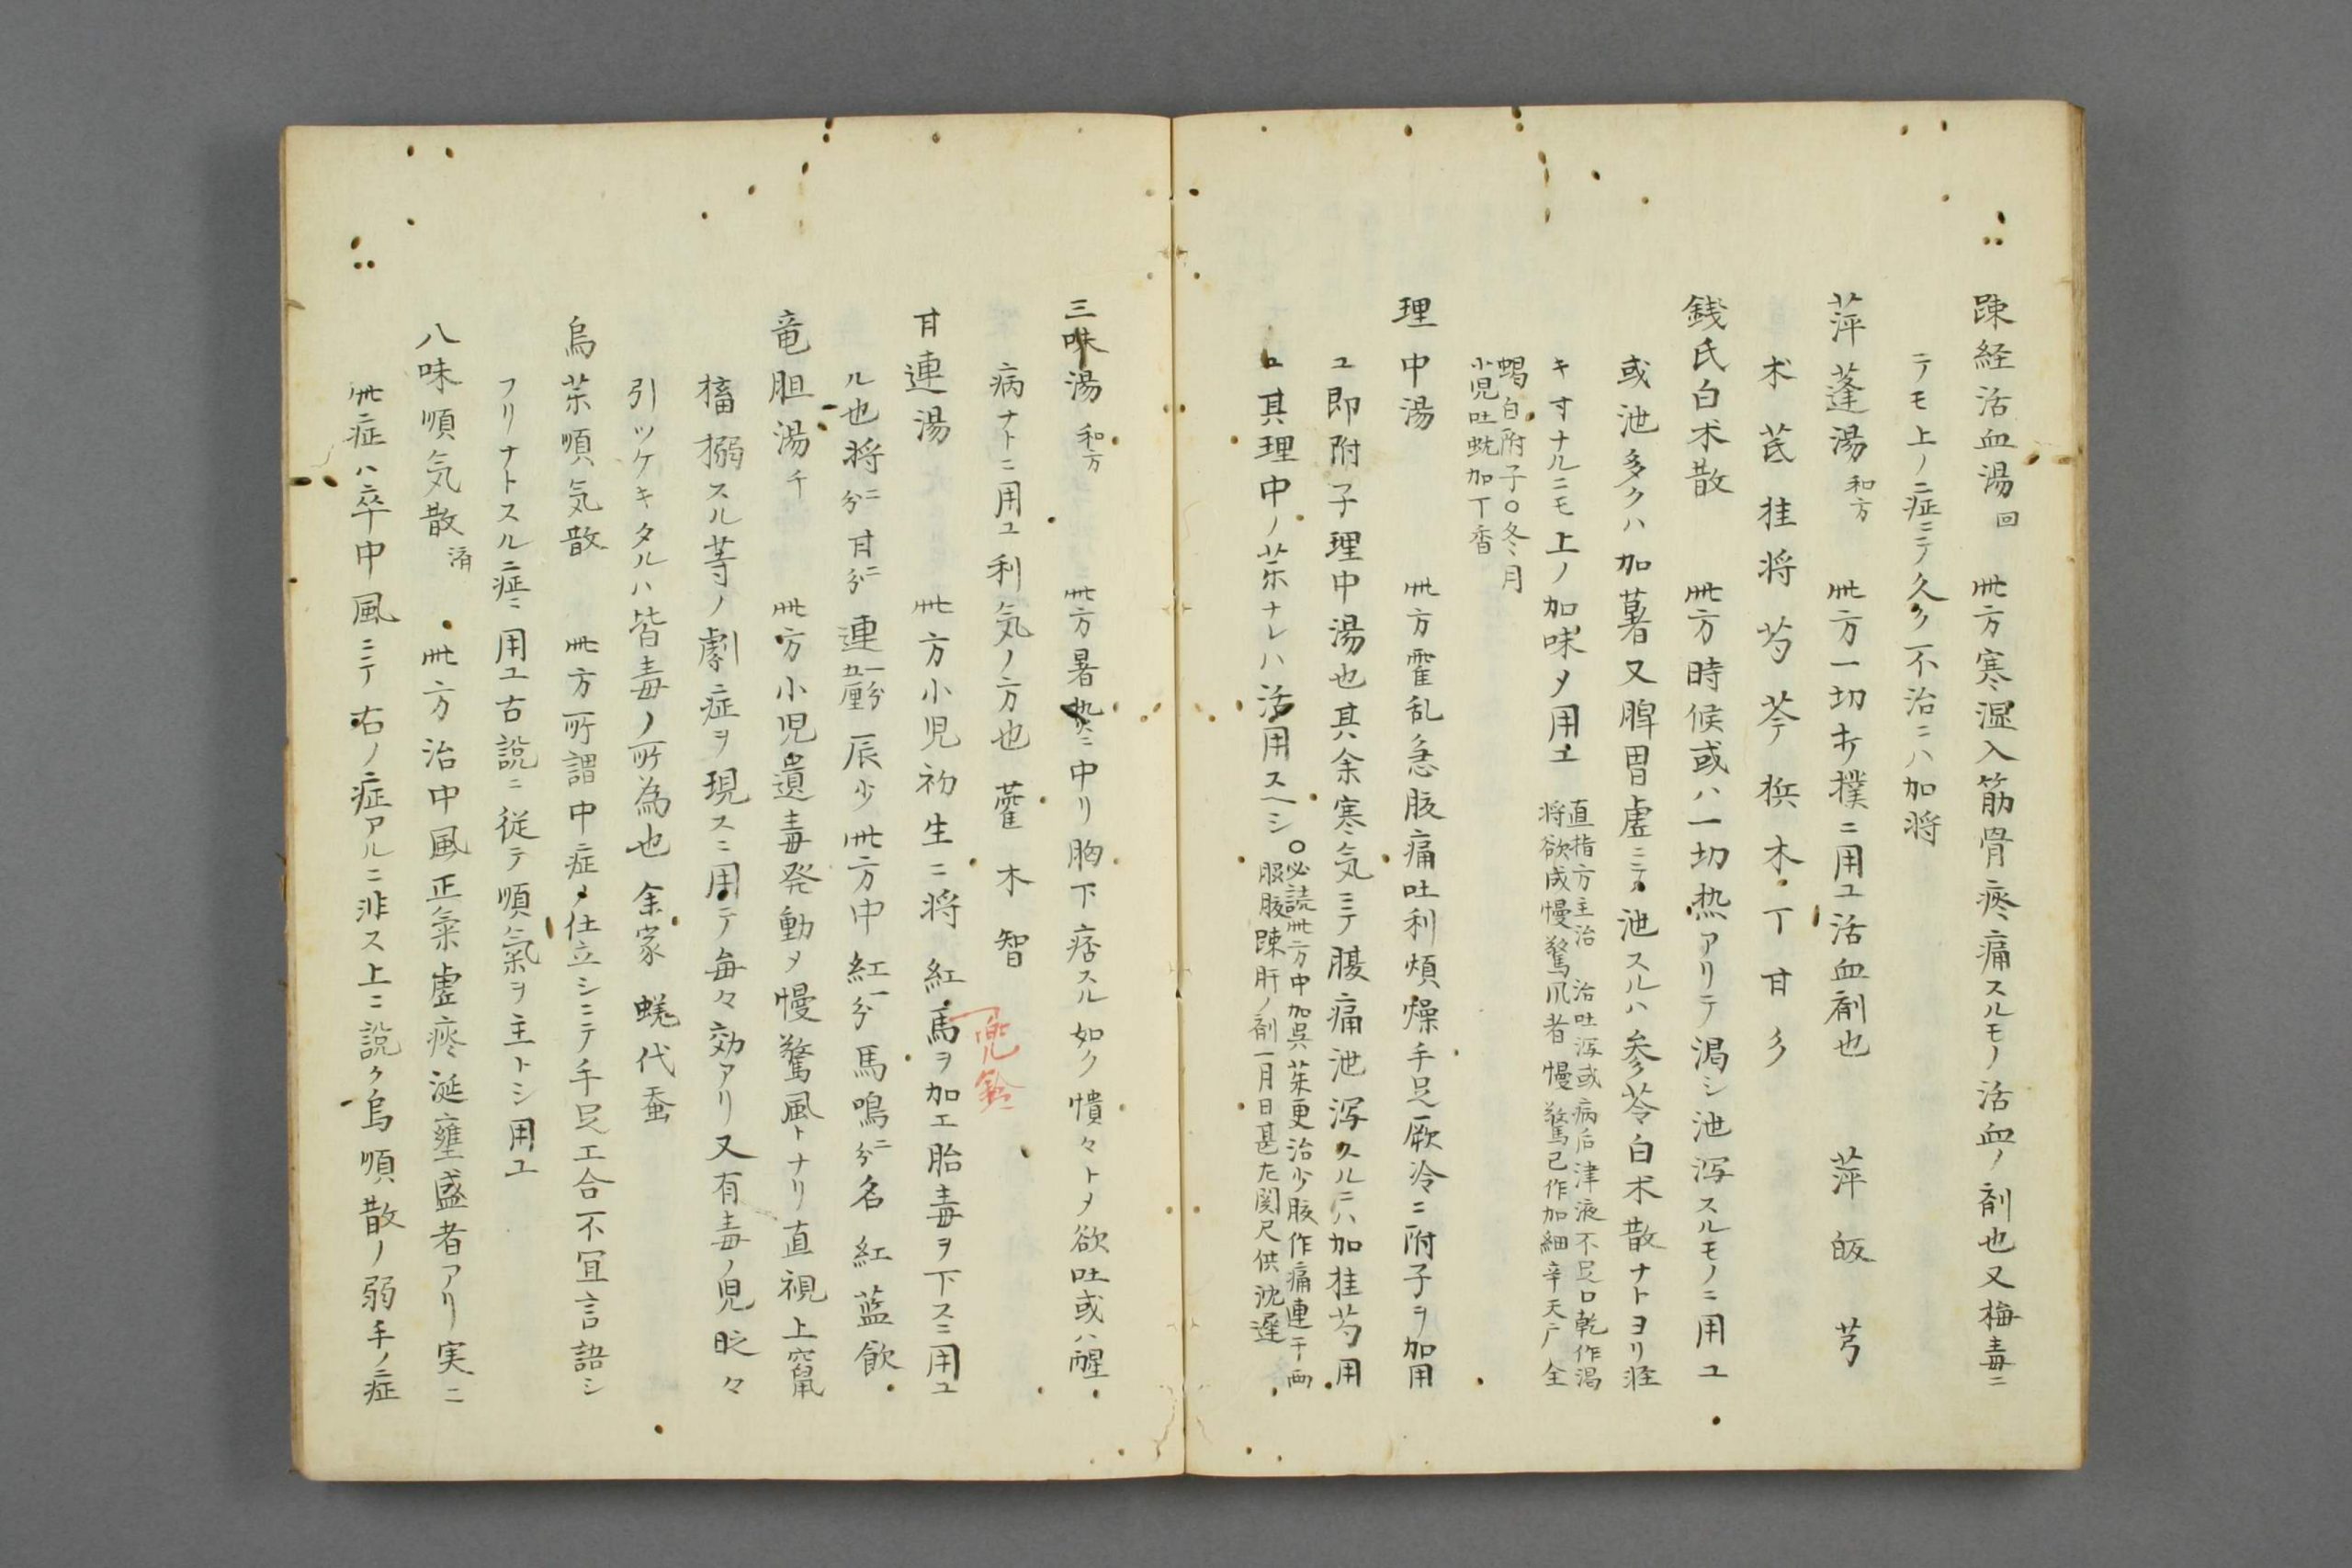 踈経活血湯 回 此方寒湿入筋骨疼痛スルモノ活血ノ剤也又梅毒ニ
テモ上ノ症ニテ久ク不治ニハ加将
萍蓬湯 和方 此方一切打撲ニ用ユ活血剤也 萍 皈 芎
朮 芪 桂 将 芍 芩 梹 木 丁 甘
銭氏白朮散 此方時候或ハ一切热アリテ渇シ泄泻スルモノニ用ユ
或泄多クハ加薯又脾胃虚ニテ泄スルハ参苓白朮散ナトヨリ軽
キ寸ナルニモ上ノ加味〆用ユ 直指方主治 治吐泻或病后津液不足口乾作渇
将欲成慢驚風者 慢驚已作加細辛天广全
蝎白附子〇冬月
小児吐蚘加丁香
理中湯 此方霍乱急腹痛吐利煩燥手足厥冷ニ附子ヲ加用
ユ即附子理中湯也其余寒気ニテ腹痛泄泻久ルニハ加桂芍用
ユ其理中ノ茱ナレハ活用スヘシ 〇必読此方中加呉茱更治少腹作痛連于両
服腹踈肝ノ剤一月日甚左関尺供沈遅
三味湯 和方 此方暑热ニ中リ胸下痞スル如ク憒々ト〆欲吐或ハ酲
病ナトニ用ユ利気ノ方也 藿 木 智
甘連湯 此方小児初生ニ将 紅 馬ヲ加エ胎毒ヲ下スニ用ユ
兜鈴
ル也将二分 甘二分 連一分五厘 辰少此方中紅一分 馬鳴二分名紅藍飲
竜胆湯 千 此方小児遺毒発動〆慢驚風トナリ直視上竄
搐搦スル等ノ劇症ヲ現スニ用テ毎々効アリ又有毒ノ児眩々
引ツケキタルハ皆毒ノ所為也余家 蜣代蚕
烏茱順気散 此方所謂中症〆仕立シニテ手足エ合不宜言語シ
フリナトスル症ニ用ユ古説ニ従テ順氣ヲ主トシ用ユ
八味順気散 済 此方治中風正氣虚痰涎壅盛者アリ実ニ
此症ハ卒中風ニテ右ノ症アルニ非ス上ニ説ク烏順散ノ弱手ノ症